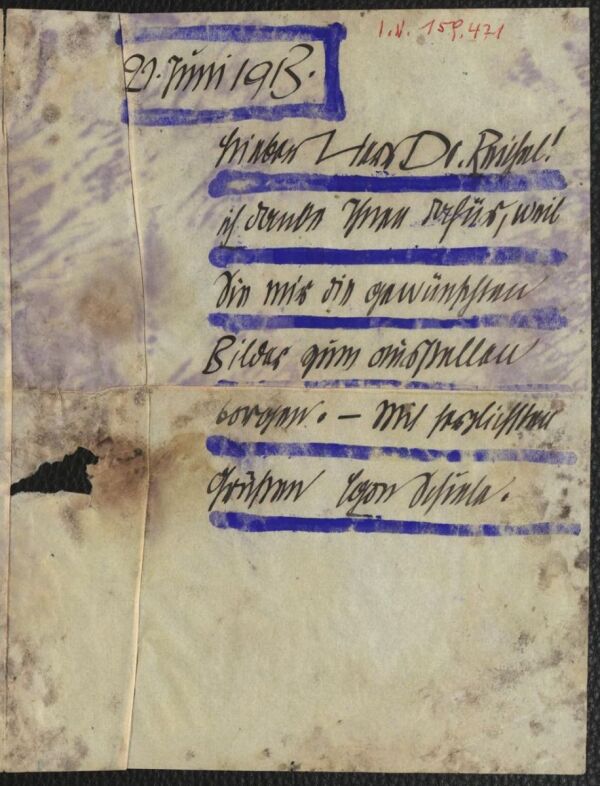 I.N. 159.471
22. Juni 1913.
Lieber Herr Dr. Reichel!
ich danke Ihnen dafür, weil
Sie mir die gewünschten
Bilder zum ausstellen
borgen. – Mit herzlichsten
Grüßen Egon Schiele.